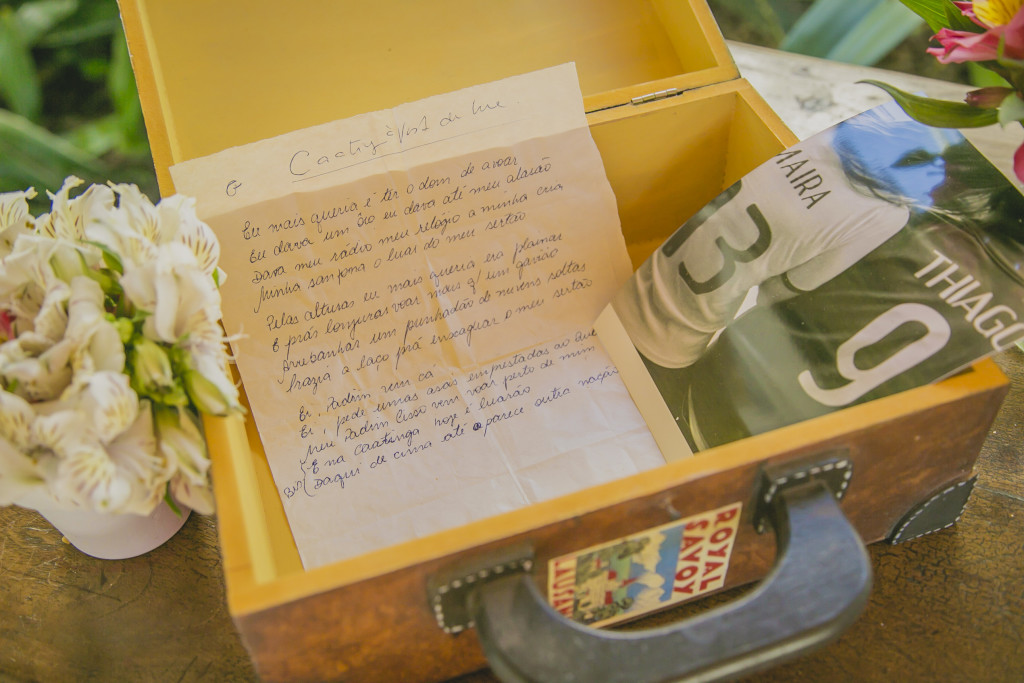 G
Caating à
Eu mais queria é ter o dom de avoar
Eu dava um Óio eu dava até meu alazão
Dava meu rádio meu relógio a minha cria
Minha sanfona o luar do meu sertão
Pelas alturas eu mais queria era planar
E prás lonjuras voar mais q/ um gavião
Arrebanhar um punhadão de nuvens soltas
Trazia a laço prá encaguar o meu sertão
Ei, Padim vem cá
Ei, pede umas asas emprestadas ao
Meu Padim Cisso vem voar perto de mim
E na Caatinga hoje é luarão
Daqui de cima até parece outra nação
Bis
MAIRA
3
THIAGO
9
ROYAL
SAVOY
LAUSAN